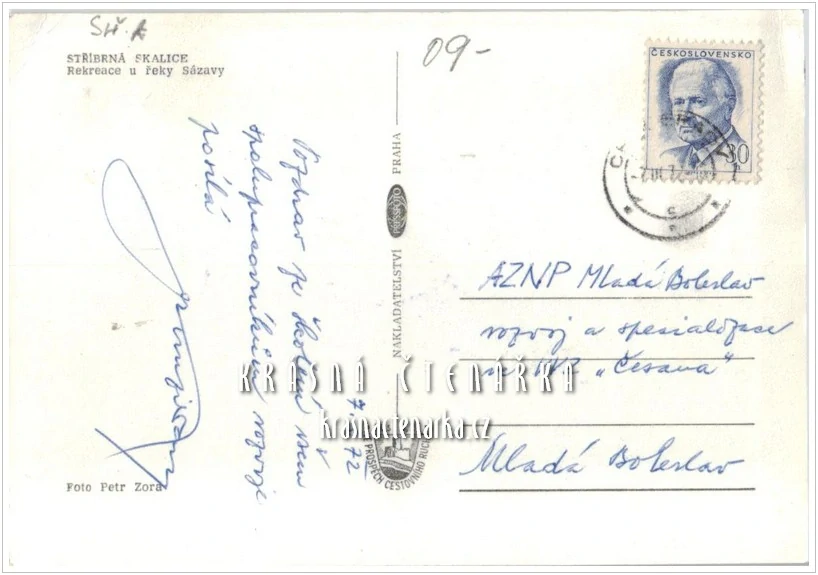 SÍŘ. A
09-
STŘÍBRNÁ SKALICE
Rekreace u řeky Sázavy
ČESKOSLOVENSKO
30
Pozdrav ze školení všem
spolupracovníkům rozvoje
posílá
7. V 72
NAKLADATELSTVÍ PRESSFOTO PRAHA
PROSPĚCH CESTOVNÍHO RUCHU
AZNP Mladá Boleslav
rozvoj a specializace
"Česana"
Mladá Boleslav
KRÁSNÁ ČTENÁŘKA
krasnactenarka.cz
Foto Petr Zora